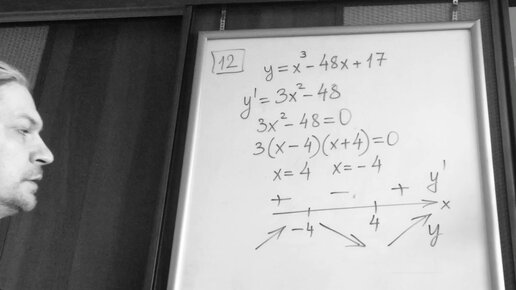 12
y = x³ - 48x + 17
y' = 3x² - 48
3x² - 48 = 0
3(x - 4)(x + 4) = 0
x = 4 x = -4
+ - + y'
-4 4 x
↗ ↘ ↗ y